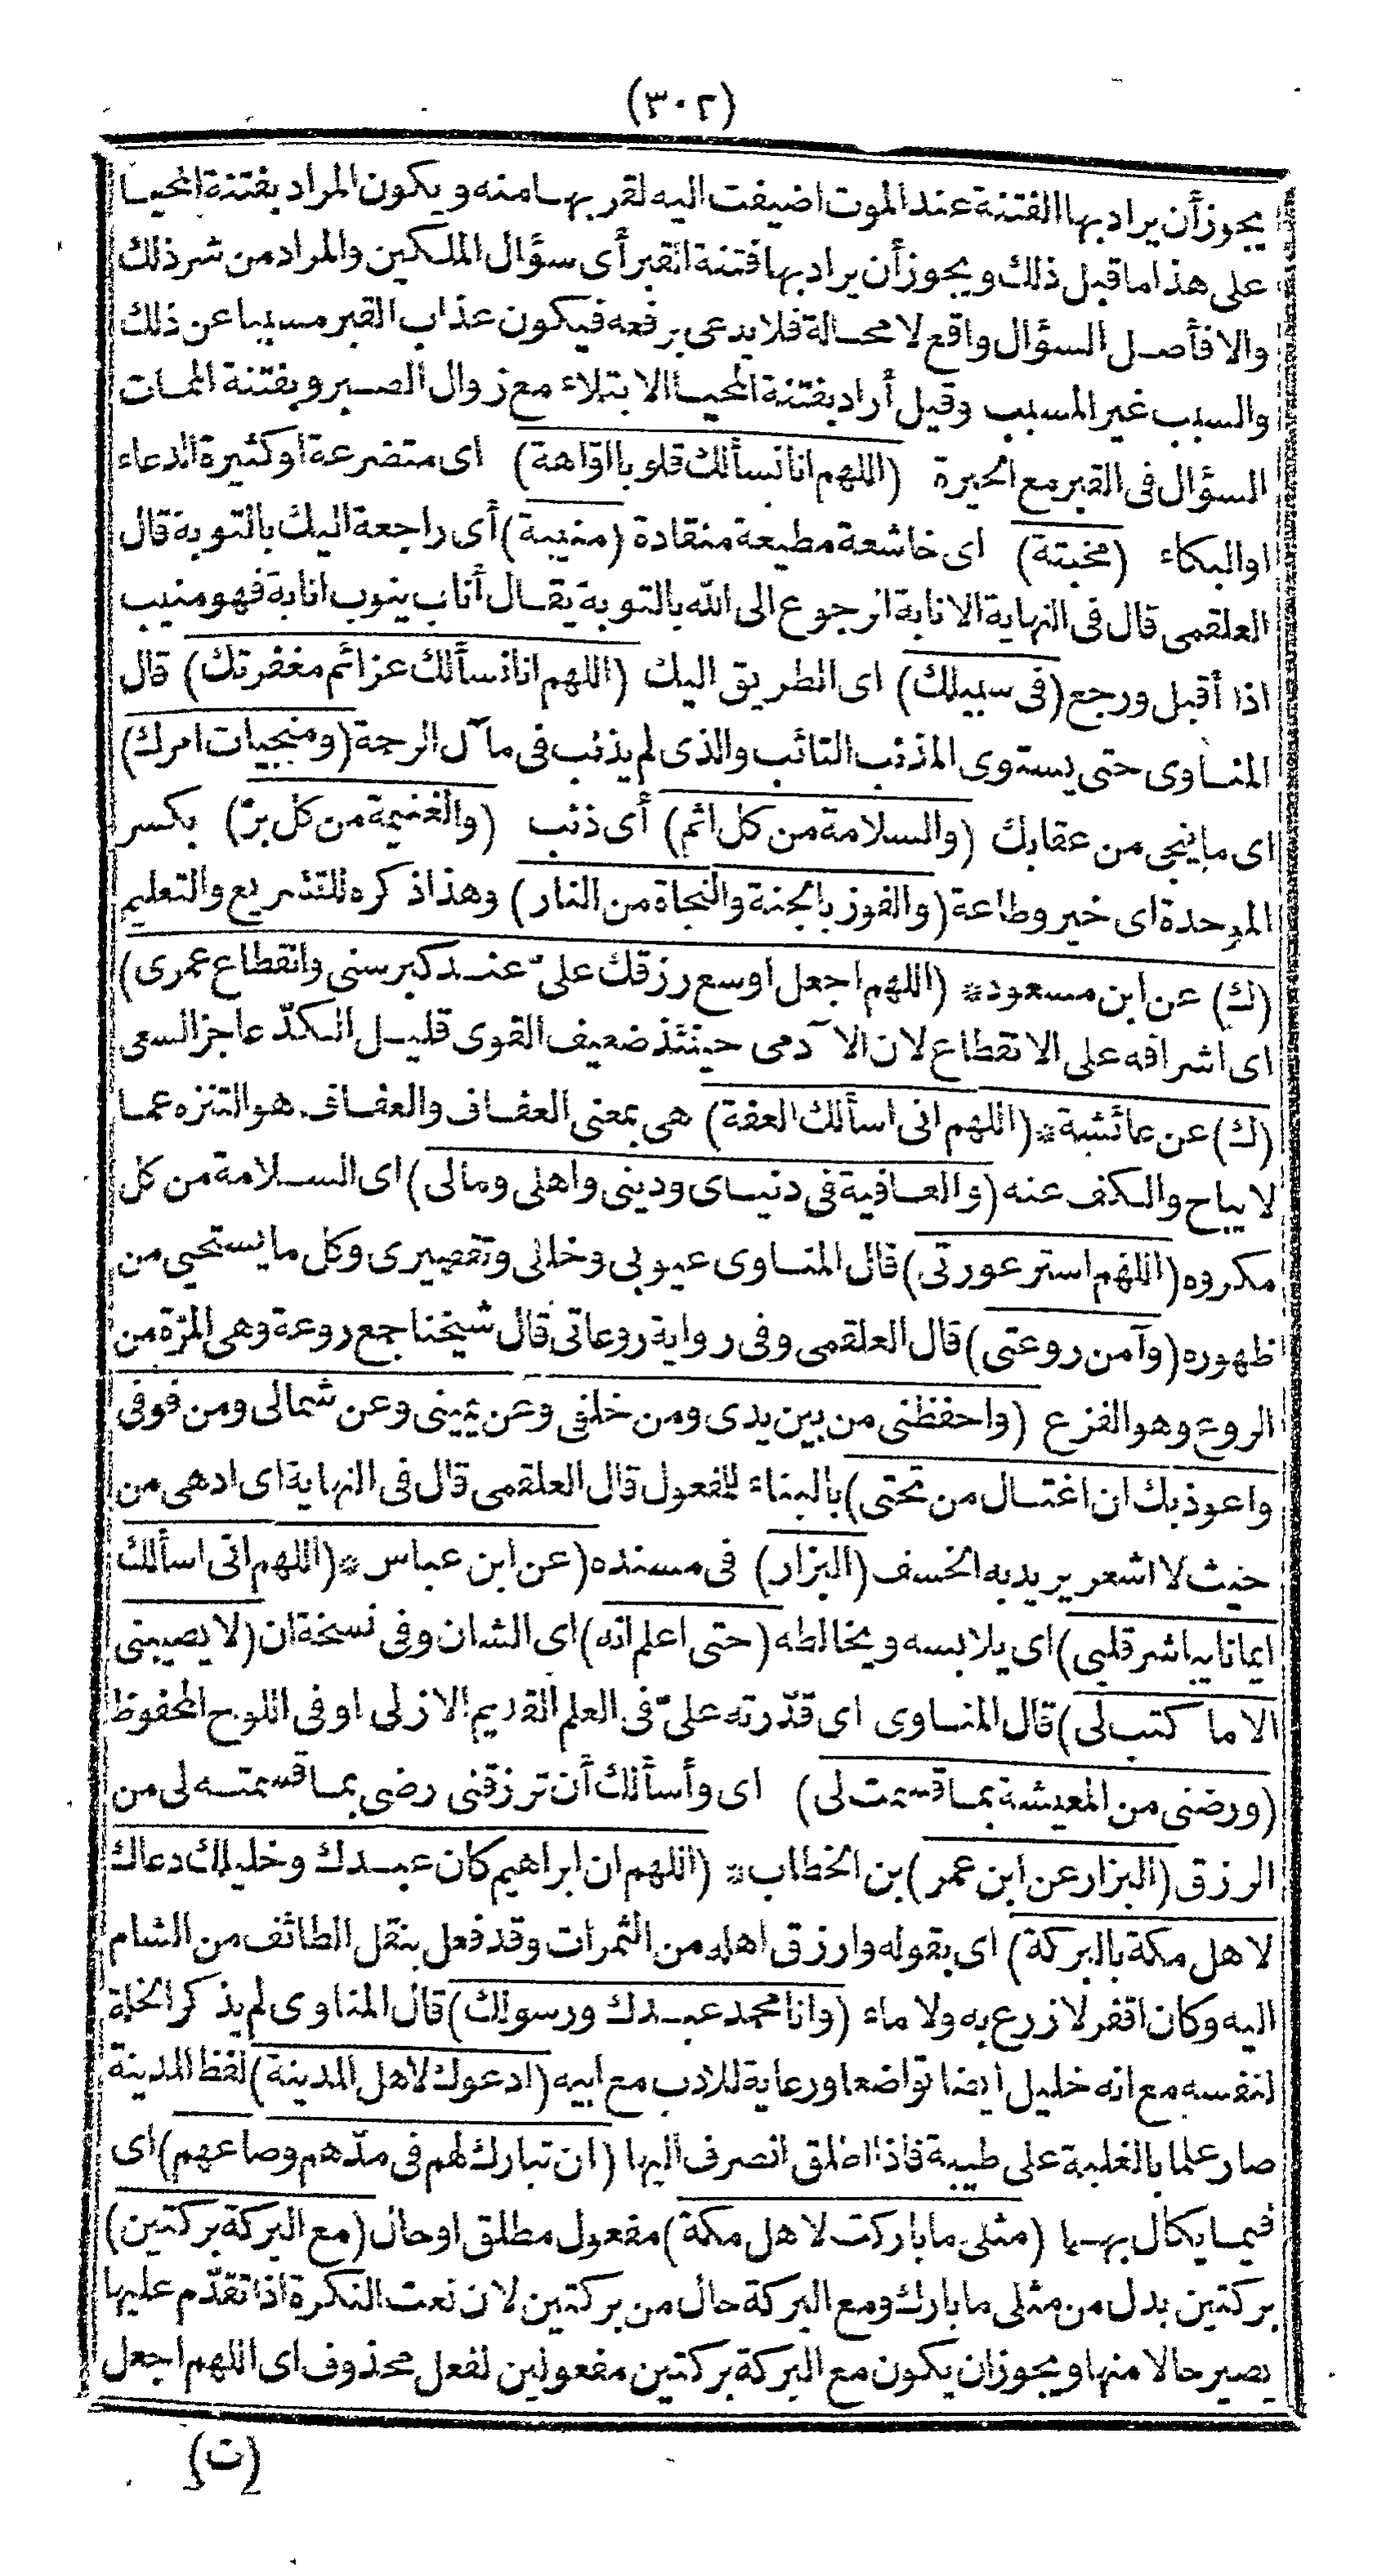 (٣٠٢)
يجوز أن يراد بها الفتنة عند الموت اضيفت اليه لقربها منه ويكون المراد بفتنة المحيا
على هذا ما قبل ذلك ويجوز أن يراد بها فتنة القبر أى سؤال الملكين والمراد من شر ذلك
والا فأصل السؤال واقع لا محالة فلا يدعى برفعه فيكون عذاب القبر مسببا عن ذلك
والسبب غير المسبب وقيل أراد بفتنة المحيا الابتلاء مع زوال الصبر وبفتنة الممات
السؤال فى القبر مع الحيرة (اللهم انا نسألك قلوبا اوّاهة) اى متضرعة او كثيرة الدعاء
او البكاء (مخبتة) اى خاشعة مطيعة منقادة (منيبة) أى راجعة اليك بالتوبة قال
العلقمى قال فى النهاية الانابة الرجوع الى الله بالتوبة يقال أناب ينوب انابة فهو منيب
اذا أقبل ورجع (فى سبيلك) اى الطريق اليك (اللهم انا نسألك عزائم مغفرتك) قال
المناوى حتى يستوى المذنب التائب والذى لم يذنب فى مآل الرحمة (ومنجيات امرك)
اى ما ينجى من عقابك (والسلامة من كل اثم) أى ذنب (والغنيمة من كل برّ) بكسر
الموحدة اى خير وطاعة (والفوز بالجنة والنجاة من النار) وهذا ذكره للتشريع والتعليم
(ك) عن ابن مسعود * (اللهم اجعل اوسع رزقك علىّ عند كبر سنى وانقطاع عمرى)
اى اشرافه على الانقطاع لان الآدمى حينئذ ضعيف القوى قليل الكدّ عاجز السعى
(ك) عن عائشة * (اللهم انى اسألك العفة) هى بمعنى العفاف والعفاف هو التنزه عما
لا يباح والكف عنه (والعافية فى دنياى ودينى واهلى ومالى) اى السلامة من كل
مكروه (اللهم استر عورتى) قال المناوى عيوبى وخللى وتقصيرى وكل ما يستحيى من
ظهوره (وآمن روعتى) قال العلقمى وفى رواية روعاتى قال شيخنا جمع روعة وهى المرّة من
الروع وهو الفزع (واحفظنى من بين يدى ومن خلفى وعن يمينى وعن شمالى ومن فوقى
واعوذ بك ان اغتال من تحتى) بالبناء للمفعول قال العلقمى قال فى النهاية اى ادهى من
حيث لا اشعر يريد به الخسف (البزار) فى مسنده (عن ابن عباس * (اللهم انى اسألك
ايمانا يباشر قلبى) اى يلابسه ويخالطه (حتى اعلم انه) اى الشان وفى نسخة ان (لا يصيبنى
الا ما كتب لى) قال المناوى اى قدّرته علىّ فى العلم القديم الازلى او فى اللوح المحفوظ
(ورضنى من المعيشة بما قسمت لى) اى وأسألك أن ترزقنى رضى بما قسمته لى من
الرزق (البزار عن ابن عمر) بن الخطاب * (اللهم ان ابراهيم كان عبدك وخليلك دعاك
لاهل مكة بالبركة) اى بقوله وارزق اهله من الثمرات وقد فعل بنقل الطائف من الشام
اليه وكان اقفر لا زرع به ولا ماء (وانا محمد عبدك ورسولك) قال المناوى لم يذكر الخلة
لنفسه مع انه خليل ايضا تواضعا ورعاية للادب مع ابيه (ادعوك لاهل المدينة) لفظ المدينة
صار علما بالغلبة على طيبة فاذا اطلق انصرف اليها (ان تبارك لهم فى مدّهم وصاعهم) اى
فيما يكال بهما (مثلى ما باركت لاهل مكة) مفعول مطلق او حال (مع البركة بركتين)
بركتين بدل من مثلى ما بارك ومع البركة حال من بركتين لان نعت النكرة اذا تقدّم عليها
يصير حالا منها ويجوز ان يكون مع البركة بركتين مفعولين لفعل محذوف اى اللهم اجعل
(ت)